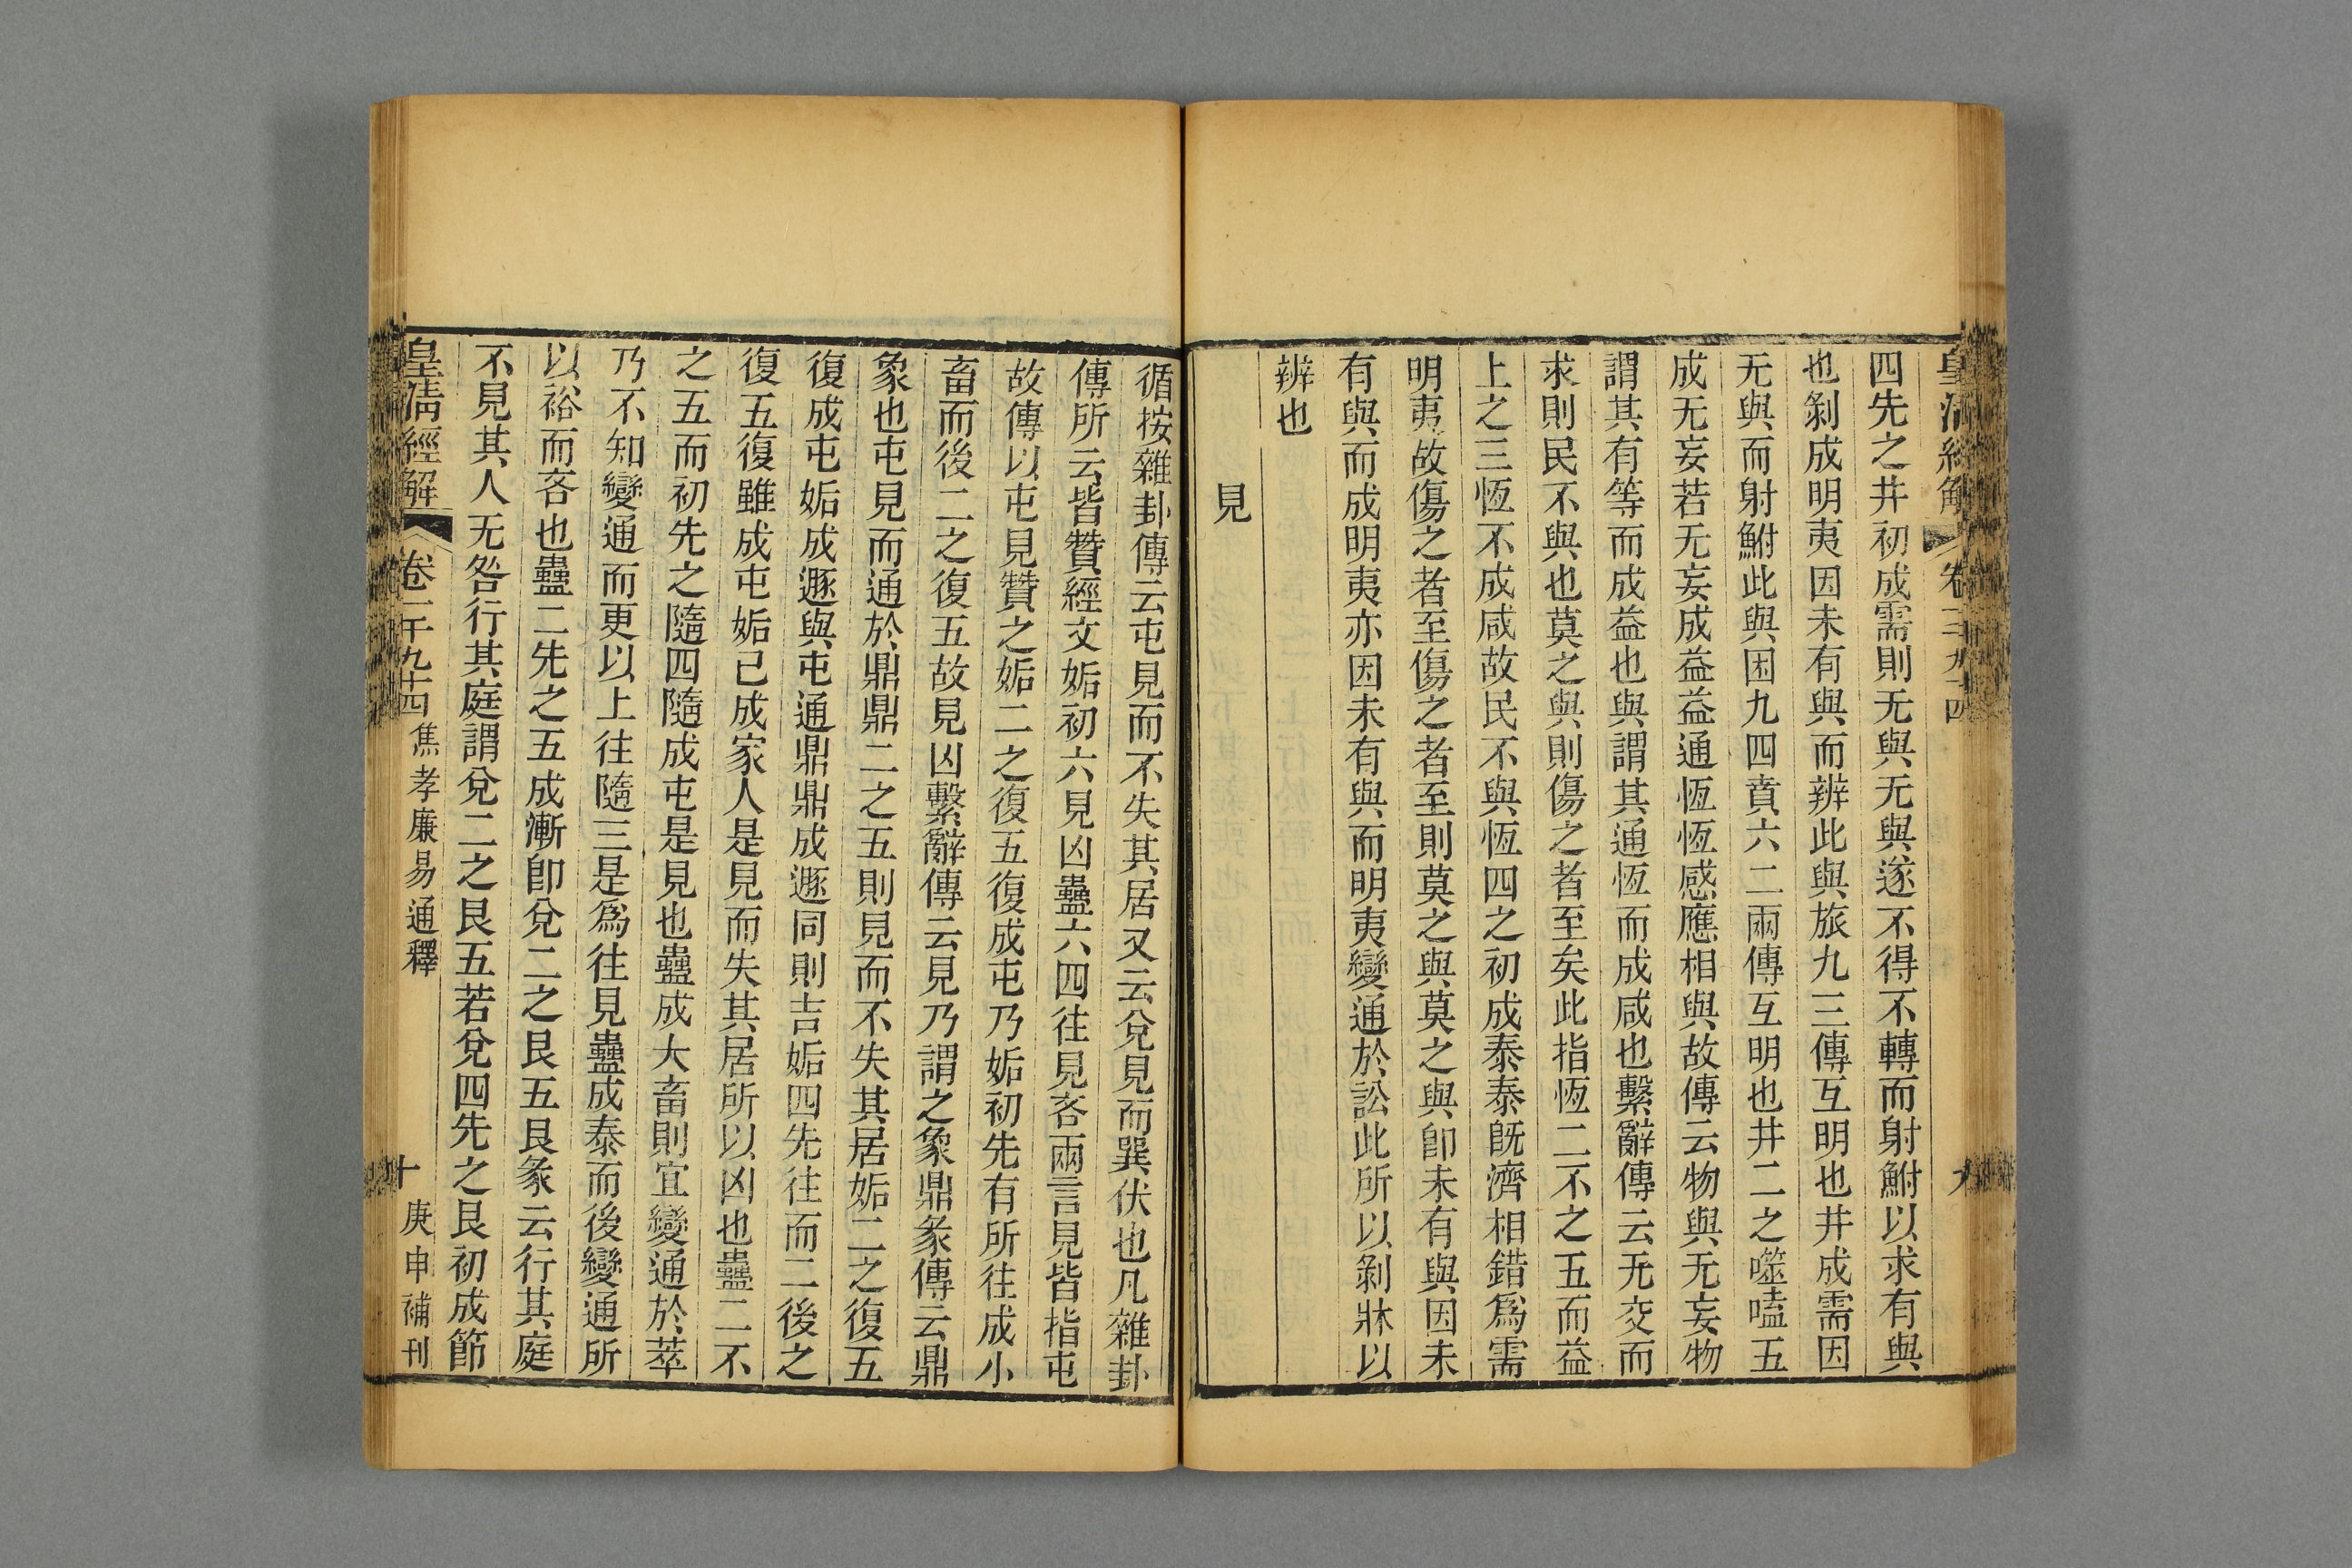 皇清經解
卷
九
四先之井初成需則无與无與遂不得不轉而射鮒以求有與
也剝成明夷因未有與而辨此與旅九三傳互明也井成需因
无與而射鮒此與困九四賁六二兩傳互明也井二之噬嗑五
成无妄若无妄成益益通恆恆感應相與故傳云物與无妄物
謂其有等而成益也與謂其通恆而成咸也繫辭傳云无交而
求則民不與也莫之與則傷之者至矣此指恆二不之五而益
上之三恆不成咸故民不與恆四之初成泰泰旣濟相錯爲需
明夷故傷之者至傷之者至則莫之與莫之與卽未有與因未
有與而成明夷亦因未有與而明夷變通於訟此所以剝牀以
辨也
見
循按雜卦傳云屯見而不失其居又云兌見而巽伏也凡雜卦
傳所云皆贊經文姤初六見凶蠱六四往見吝兩言見皆指屯
故傳以屯見贊之姤二之復五復成屯乃姤初先有所往成小
畜而後二之復五故見凶繫辭傳云見乃謂之象鼎彖傳云鼎
象也屯見而通於鼎鼎二之五則見而不失其居姤二之復五
復成屯姤成遯與屯通鼎鼎成遯同則吉姤四先往而二後之
復五復雖成屯姤已成家人是見而失其居所以凶也蠱二不
之五而初先之隨四隨成屯是見也蠱成大畜則宜變通於萃
乃不知變通而更以上往隨三是爲往見蠱成泰而後變通所
以裕而吝也蠱二先之五成漸卽兌二之艮五艮彖云行其庭
不見其人无咎行其庭謂兌二之艮五若兌四先之艮初成節
皇清經解
卷一千九十四
焦孝廉易通釋
十
庚申補刊